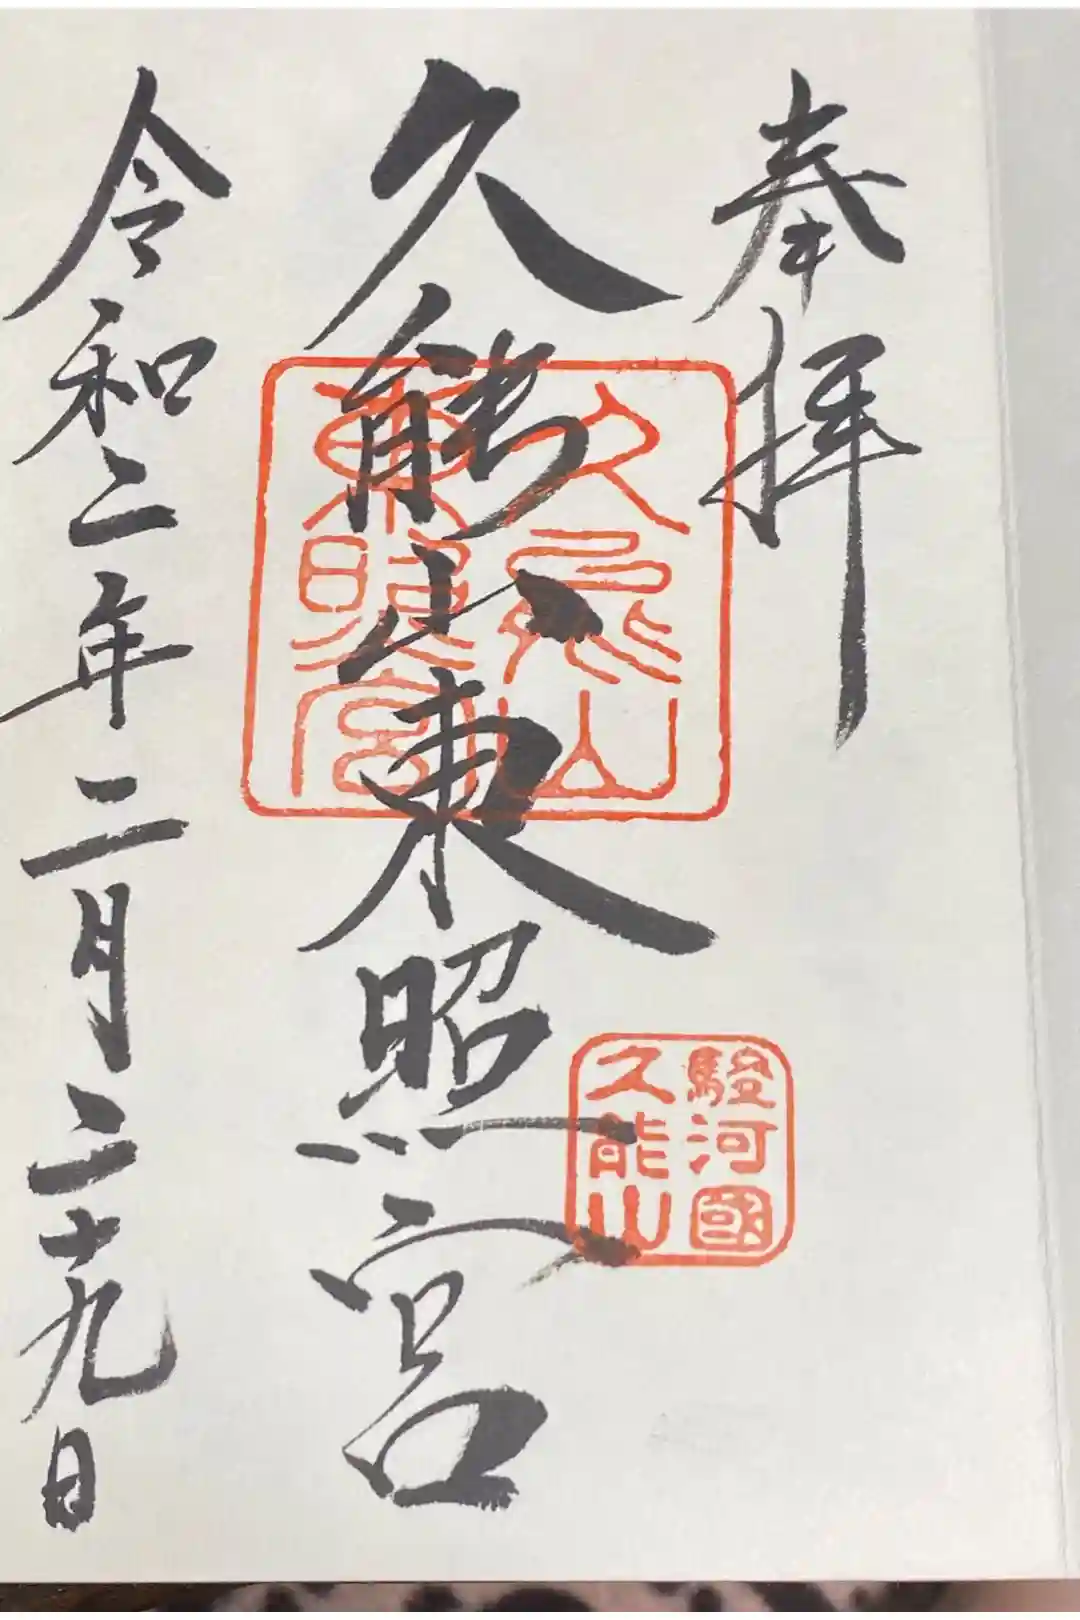 奉拝
久能山東照宮
令和二年二月二十九日
久能山
東照宮
駿河國
久能山